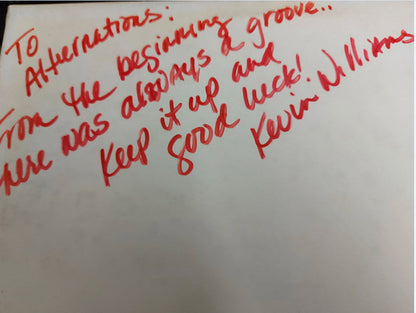 To
Alternations:
From the beginning
there was always a groove..
Keep it up and
good luck!
Kevin Williams